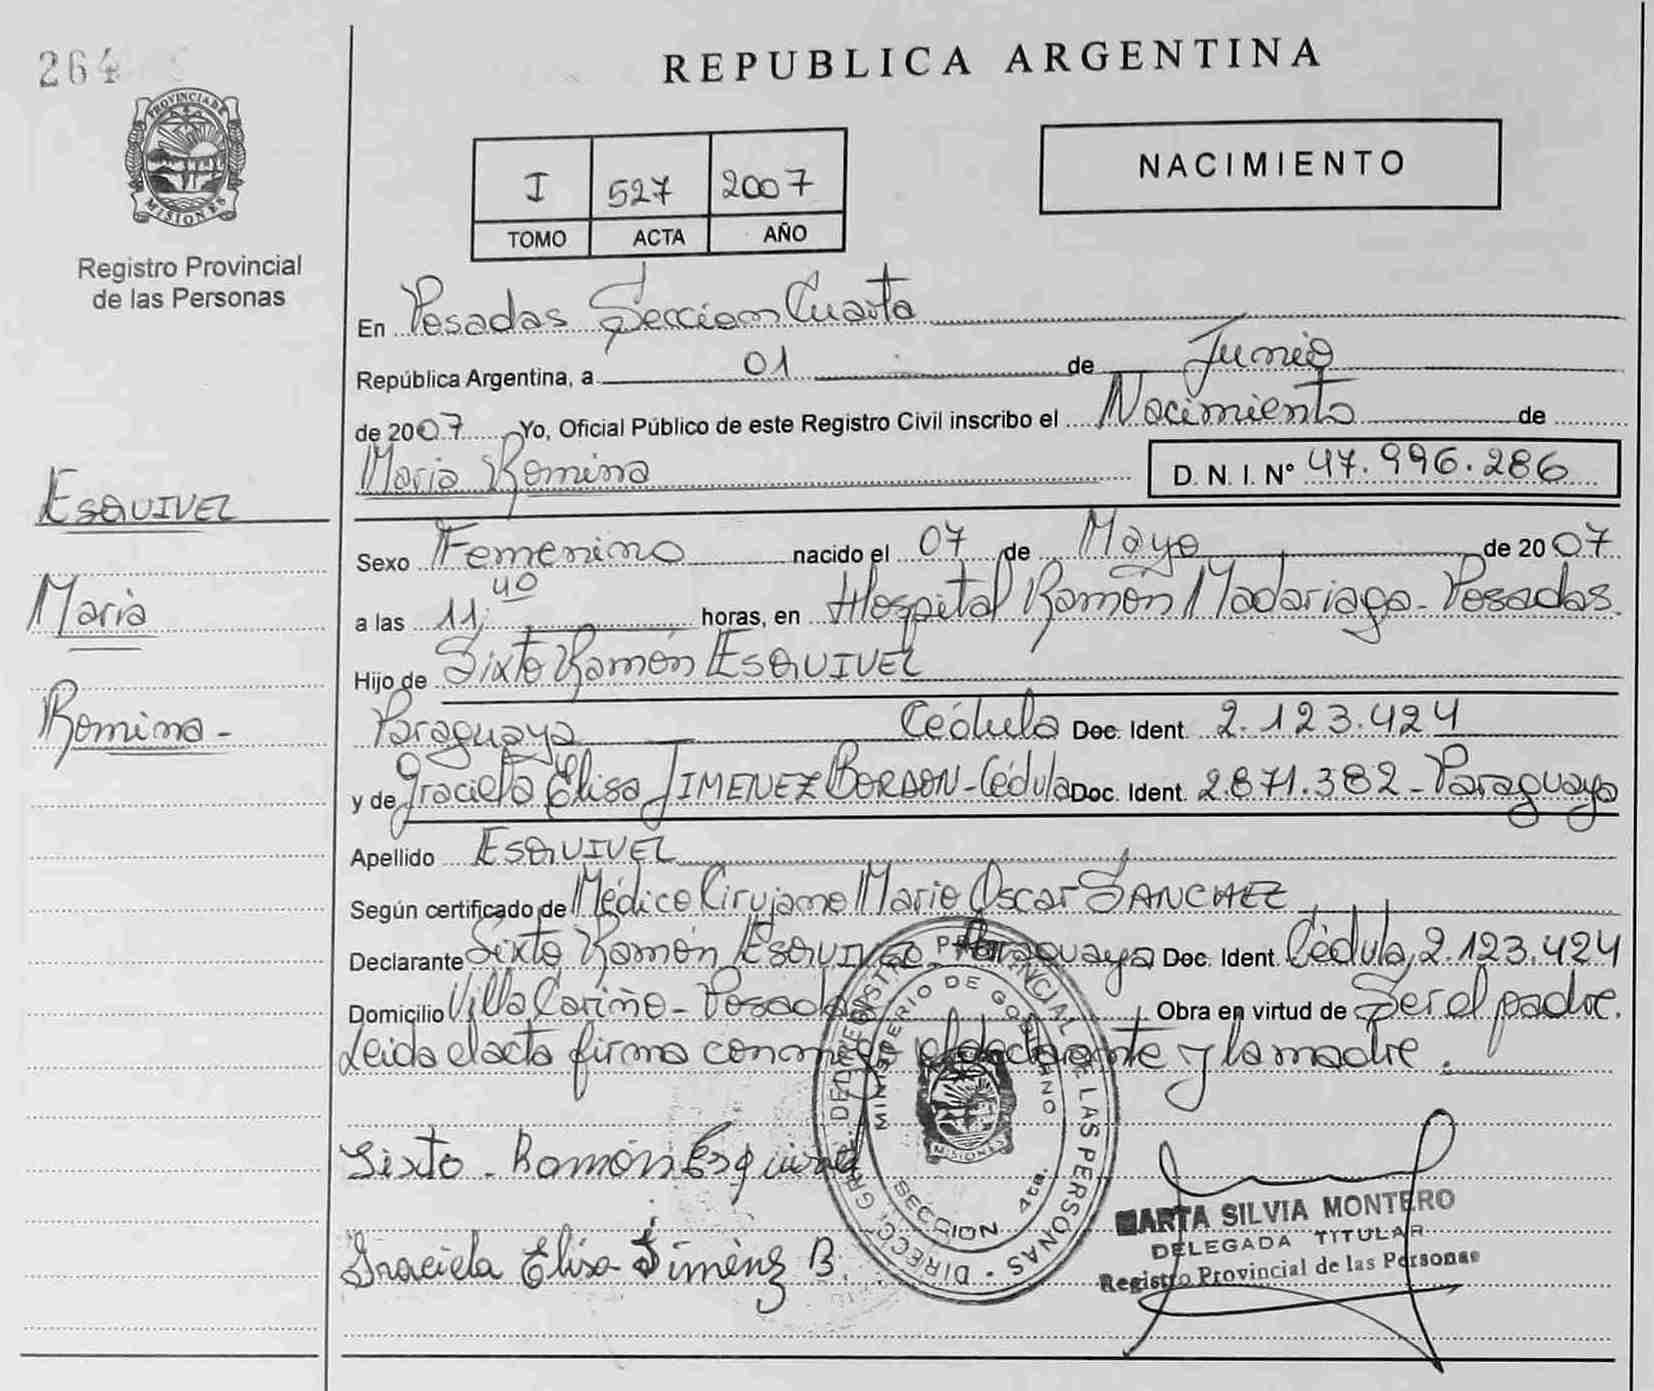 264
PROVINCIA DE
MISIONES
Registro Provincial
de las Personas
ESQUIVEL
María
Romina -
REPUBLICA ARGENTINA
I 527 2007
TOMO ACTA AÑO
NACIMIENTO
En Posadas Sección Cuarta
República Argentina, a 01 de Junio
de 2007 Yo, Oficial Público de este Registro Civil inscribo el Nacimiento de
María Romina D. N. I. N° 47.996.286
Sexo Femenino nacido el 07 de Mayo de 2007
a las 11;40 horas, en Hospital Ramón Madariaga - Posadas.
Hijo de Sixto Ramón ESQUIVEL
Paraguaya Cédula Doc. Ident. 2.123.424
y de Graciela Elisa JIMENEZ BORDON - Cédula Doc. Ident. 2.871.382 - Paraguaya
Apellido ESQUIVEL
Según certificado de Médico Cirujano Mario Oscar SANCHEZ
Declarante Sixto Ramón ESQUIVEL - Paraguaya Doc. Ident. Cédula 2.123.424
Domicilio Villa Cariño - Posadas Obra en virtud de Ser el padre.
Leída el acta firma conmigo el declarante y la madre.
Sixto - Ramón Esquivel
Graciela Elisa Jiménz B.
DIRECC. GRAL. DEL REGISTRO PROVINCIAL DE LAS PERSONAS
MINISTERIO DE GOBIERNO
MISIONES
SECCION 4ta.
MARTA SILVIA MONTERO
DELEGADA TITULAR
Registro Provincial de las Personas